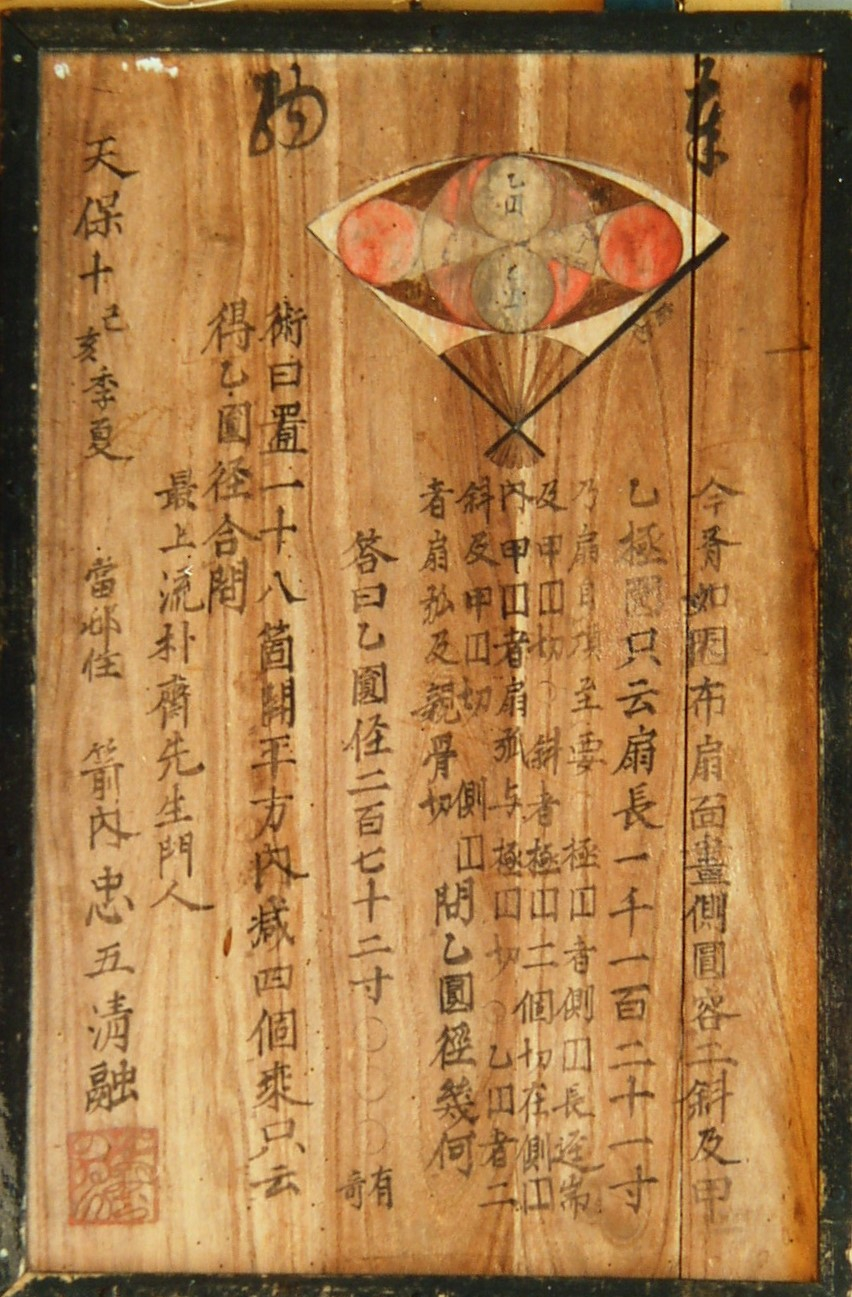 奉
納
乙円
今有如図布扇面畫側圓容二斜及甲
乙極圓只云扇長一千一百二十一寸
乃扇自頂至要 極囗者側囗長逕
及甲囗切〇斜者極囗二個切在側囗
内甲囗者扇弧与極囗切〇乙囗者二
斜及甲囗切 側囗
者扇弧及親骨切 問乙圓径幾何
答曰乙圓径二百七十二寸〇〇〇有奇
術曰置一十八箇開平方内减四個乗只云
得乙圓径合問
最上流朴齋先生門人
天保十己亥季夏
當邨住 箭内忠五清融